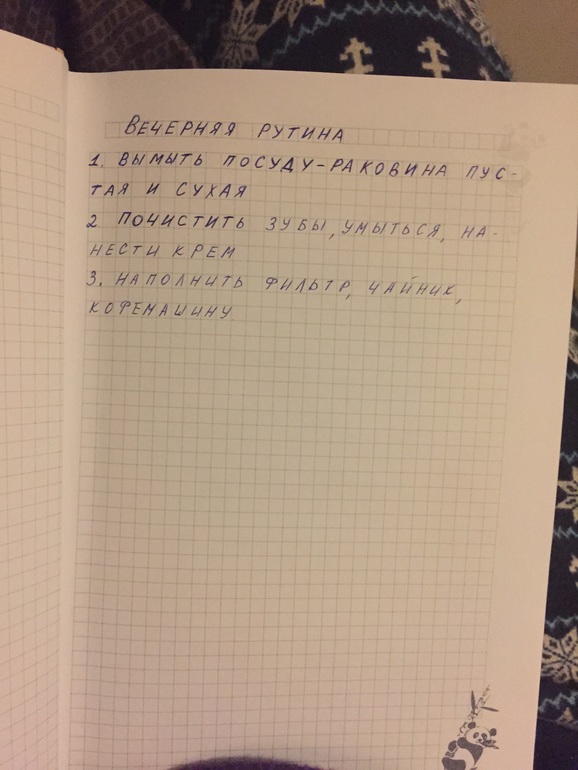 ВЕЧЕРНЯЯ РУТИНА
1. ВЫМЫТЬ ПОСУДУ-РАКОВИНА ПУС-
ТАЯ И СУХАЯ
2 ПОЧИСТИТЬ ЗУБЫ, УМЫТЬСЯ, НА-
НЕСТИ КРЕМ
3. НАПОЛНИТЬ ФИЛЬТР, ЧАЙНИК,
КОФЕМАШИНУ